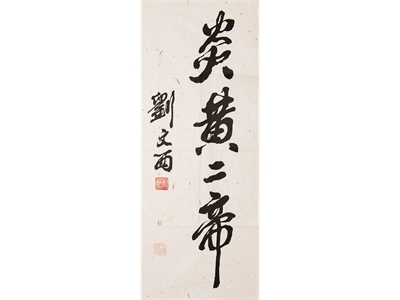 炎黄二帝
劉文西